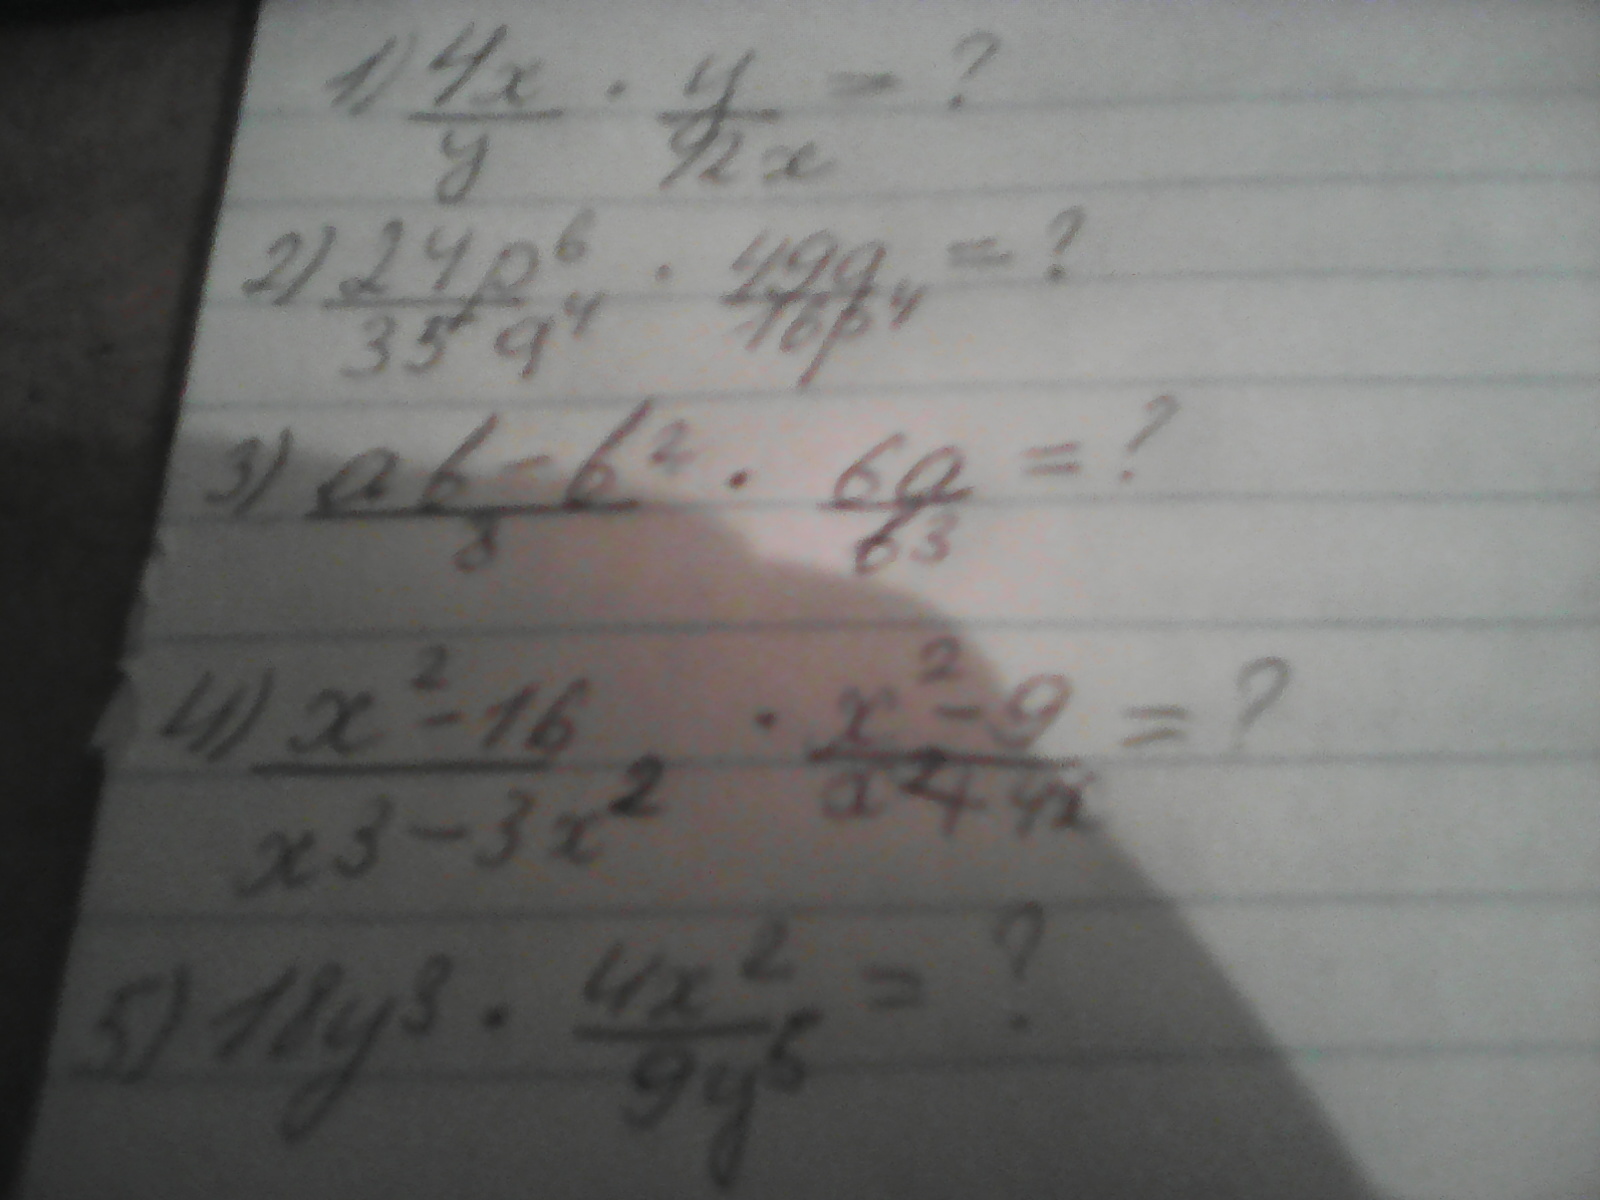 1) 4x/y · y/12x = ?
2) 24p⁶/35q⁴ · 49q/16p⁴ = ?
3) ab - b²/8 · 6a/b³ = ?
4) x² - 16/x3 - 3x² · x² - 9/x² + 4x = ?
5) 18y³ · 4x²/9y⁵ = ?